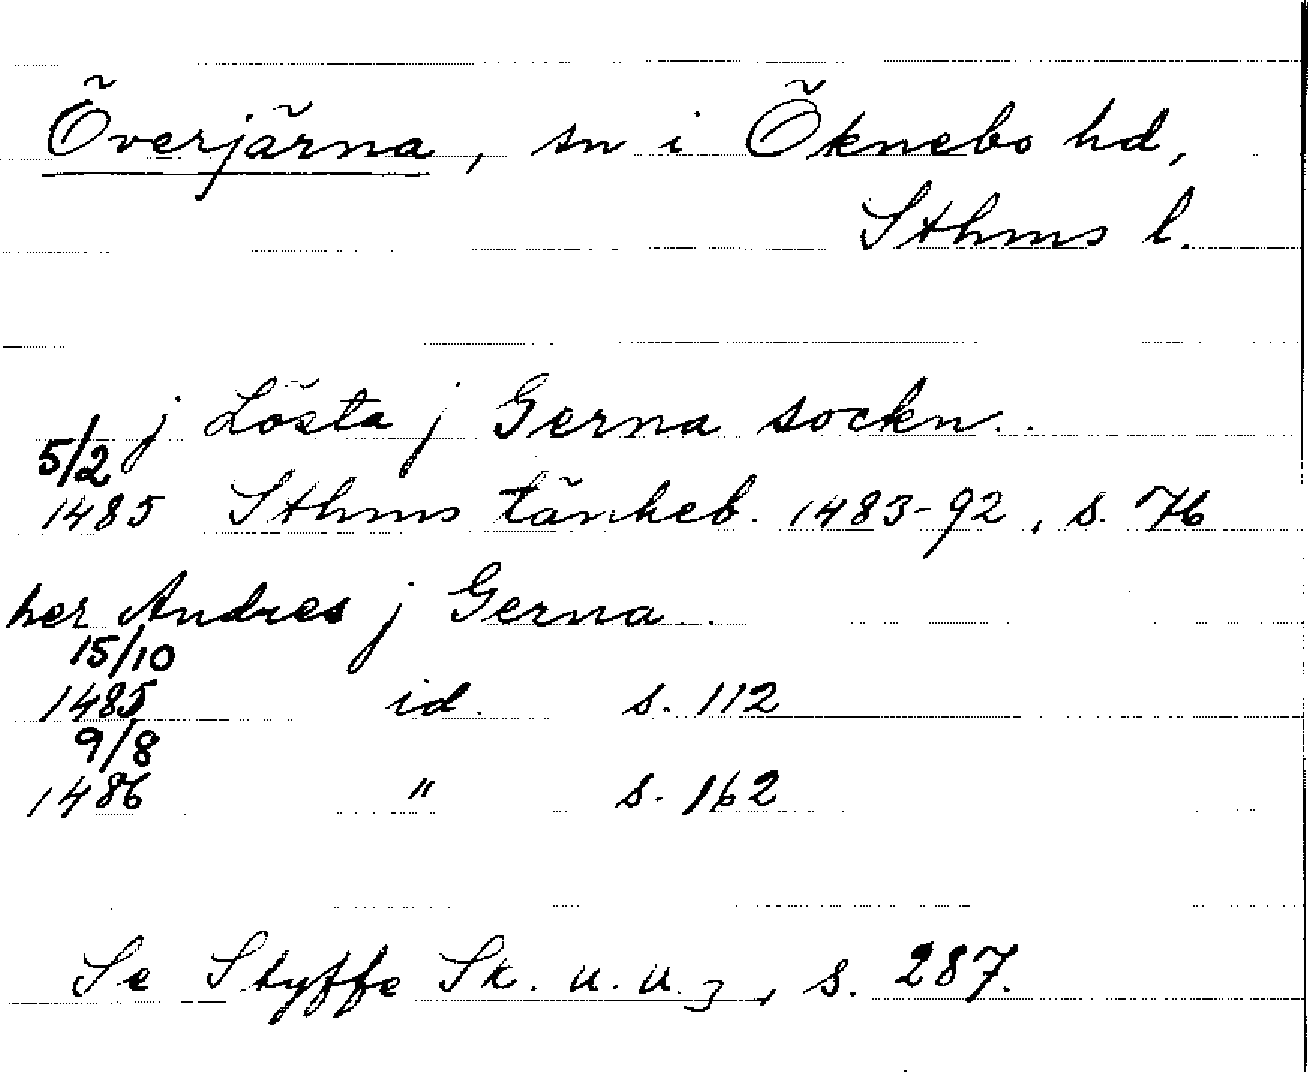 Överjärna, sn i Öknebo hd,
Sthms l.
j Lösta j Gerna sockn.
5/2
1485 Sthms tänkeb. 1483-92, s. 76
her Andres j Gerna
15/10
1485 id. s. 112
9/8
1486 " s. 162
Se Styffe Sk. u. u. 3, s. 287.